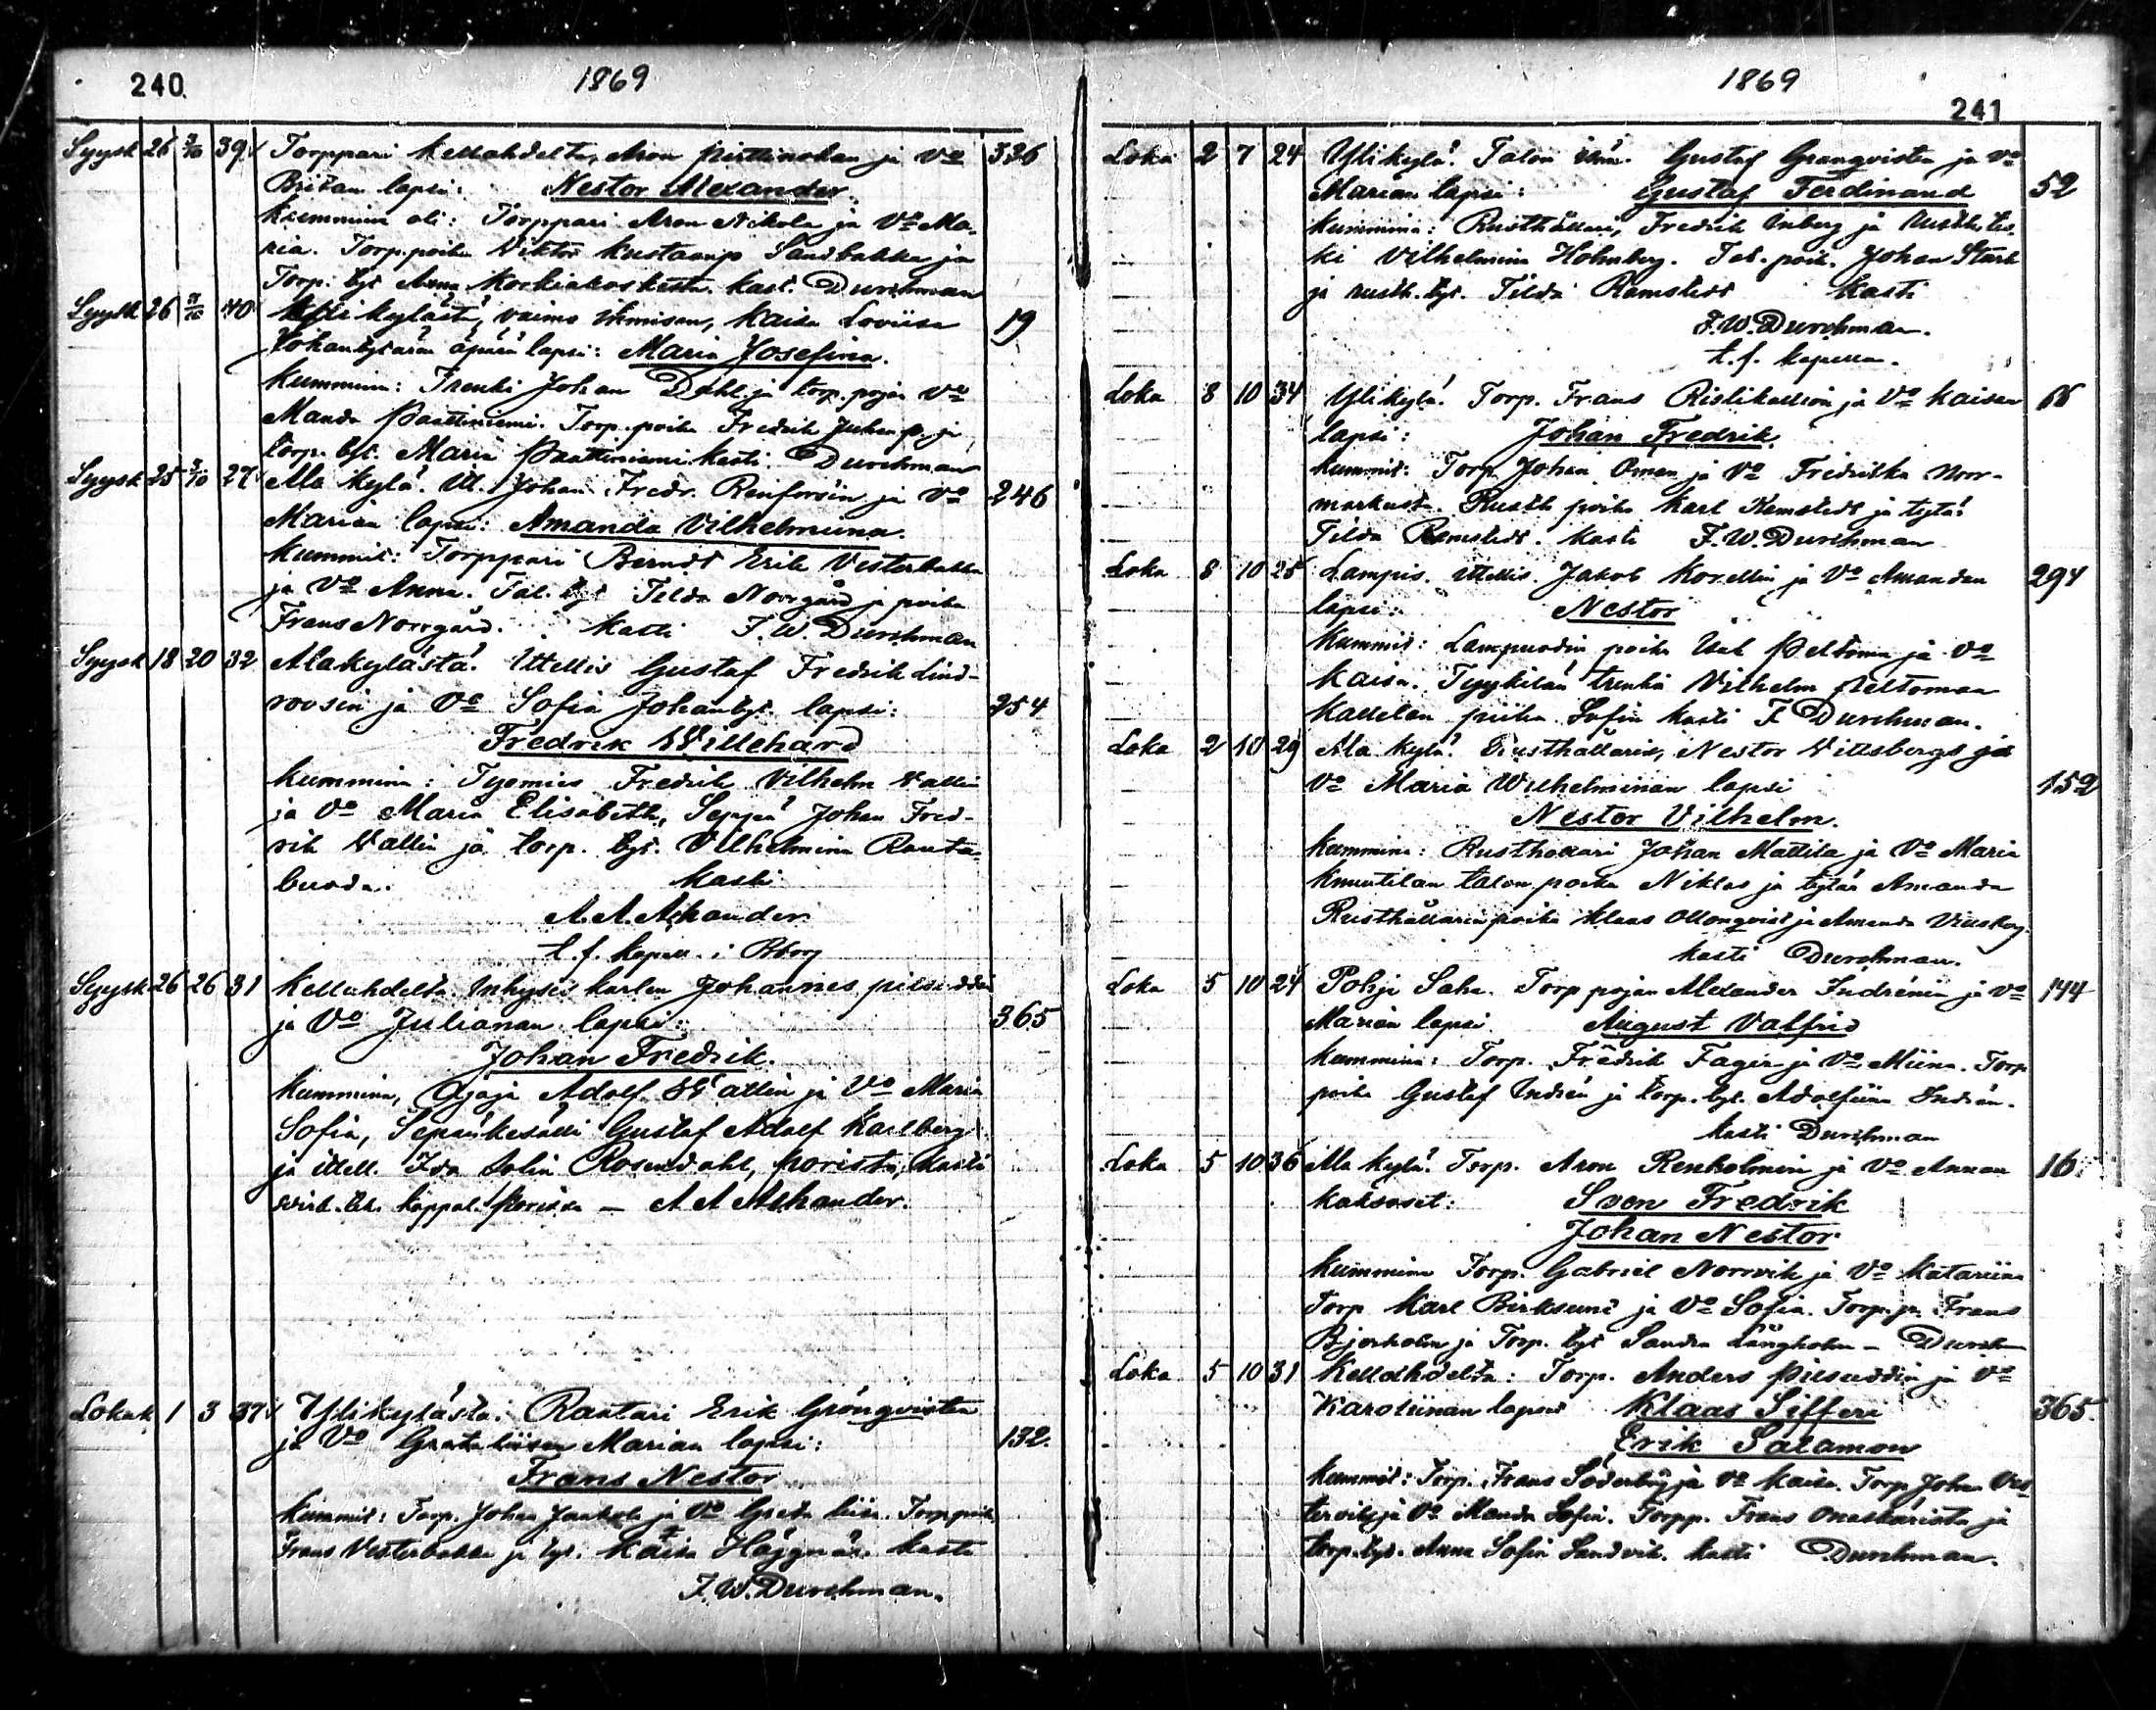 240
1869
Syysk 26 3/10 39 Torppari Kellahdelta, Aron Pirttinokan ja Vo 336
Britan lapsi: Nestor Alexander.
Kummina oli: Torppari Aron Nikola ja Vo Ma-
ria. Torp. poika Viktor Kustaanp. Sandbakka ja
Torp. tyt Anna Korkiakoskesta. kast. Durchman
Syysk 26 40 Ylikylästä, vaimo ihmisen, Kaisa Loviisa 19
Johantytären äpärä lapsi: Maria Josefina.
Kummina: Trenki Johan Dahl ja torp. pojan Vo
Manda Paattiniemi. Torp. poika Fredrik Juhanp. ja
torp. tyt. Maria Paattiniemi kasti Durchman
Syysk 25 27 Ala kylä. Itl. Johan Fredr. Renforsin ja Vo 246
Marian lapsi: Amanda Vilhelmiina.
Kummit: Torppari Berndt Erik Vesterbakka
ja Vo Anna. Tal. tyt Tilda Norrgård ja poika
Frans Norrgård. Kasti F. W. Durchman
Syysk 18 20 32 Alakylästä. Ittellis Gustaf Fredrik Lind-
roosin ja Vo Sofia Johantyt. lapsi: 254
Fredrik Willehard
Kummina: Tyomies Fredrik Vilhelm Vallin
ja Vo Maria Elisabeth, Seppä Johan Fred-
rik Wallin ja torp. tyt. Vilhelmina Ranta
buoda. Kasti
A. A. Ahander
t. f. Kapell. i Bborg
Syysk 26 26 31 Kellahdelta Inhysis karlen Johannes
ja Vo Julianan lapsi: 365
Johan Fredrik.
Kummina, Ajaja Adolf Wallin ja Vo Maria
Sofia, Sepänkesälli Gustaf Adolf Karlberg
ja ittell. Ida Rosendahl, Porista, kasti
virk. tek. kappal. Porissa — A A Ahander.
Lokak 1 3 37 Ylikylästä: Rantari Erik Grönqvisten
ja Vo Greta Liisan Marian lapsi: 132.
Frans Nestor
Kummit: Torp. Johan ja Vo Greeta Liisa. Torp poik.
Frans Vesterbakka ja tyt. Kaisa Kasti
F. W. Durchman.
1869
241
Loka 2 7 24 Ylikylä. Talon isän. Gustaf Granqvisten ja Vo
Marian lapsi: Gustaf Ferdinand 52
Kummina: Rusthållari, Fredrik Inberg ja rusth. les-
ki Vilhelmina Holmberg. Tal. poik. Johan Stark
ja rusth. tyt. Tilda Ramstedt Kasti
F. W. Durchman.
t. f. Kapellan.
Loka 8 10 34 Ylikylä. Torp. Frans Ristikallion ja Vo Kaisan
lapsi: Johan Fredrik.
Kummit: Torp. Johan Oman ja Vo Fredrika Norr-
markusta. Rusth poika Karl Ramstedt ja tytär
Tilda Ramstedt. Kasti F. W. Durchman
Loka 8 10 25 Lampis. Ittellis. Jakob Korellin ja Vo Amandan 294
lapsi: Nestor
Kummit: Lampuodin poika Isak Peltoma ja Vo
Kaisa. Tyykilän trenki Vilhelm Peltoman
Kallelan piika Sofia kasti F Durchman.
Loka 2 10 29 Ala kylä. Rusthållarin, Nestor Villsbergs ja
Vo Maria Wilhelminan lapsi 152
Nestor Vilhelm.
Kummina: Rusthollari Johan Mattila ja Vo Maria
Knuutilan talon poika Niklas ja tytär Amanda
Rusthållarin poika Klaas Ollonqvist ja Amanda Villsberg.
Kasti Durchman.
Loka 5 10 24 Pohja Saha. Torp pojan Alexander Indrénin ja Vo 144
Marian lapsi August Valfrid
Kummina: Torp. Fredrik Fager ja Vo Miina. Torp
poika Gustaf Indrén ja torp. tyt. Adolfiina Indrén.
Kasti Durchman
Loka 5 10 36 Ala kylä. Torp. Aron Renholmin ja Vo Annan 16.
kaksoset: Sven Fredrik
Johan Nestor
Kummina Torp. Gabriel Norrvik ja Vo Katariina
Torp Karl Birksund ja Vo Sofia. Torp. p. Frans
Bjorkholm ja Torp. tyt Sandra Långholm — Durchm
Loka 5 10 31 Kellahdelta: Torp. Anders ja Vo
Karoliinan lapset Klaas Sifferi 365.
Erik Salamon
Kummit: Torp. Frans Söderby ja Vo Kaisa. Torp Johan Ves-
tervik ja Vo Manda Sofia. Torpp. Frans ja
torp. tyt. Anna Sofia Sandvik. kasti Durchman.